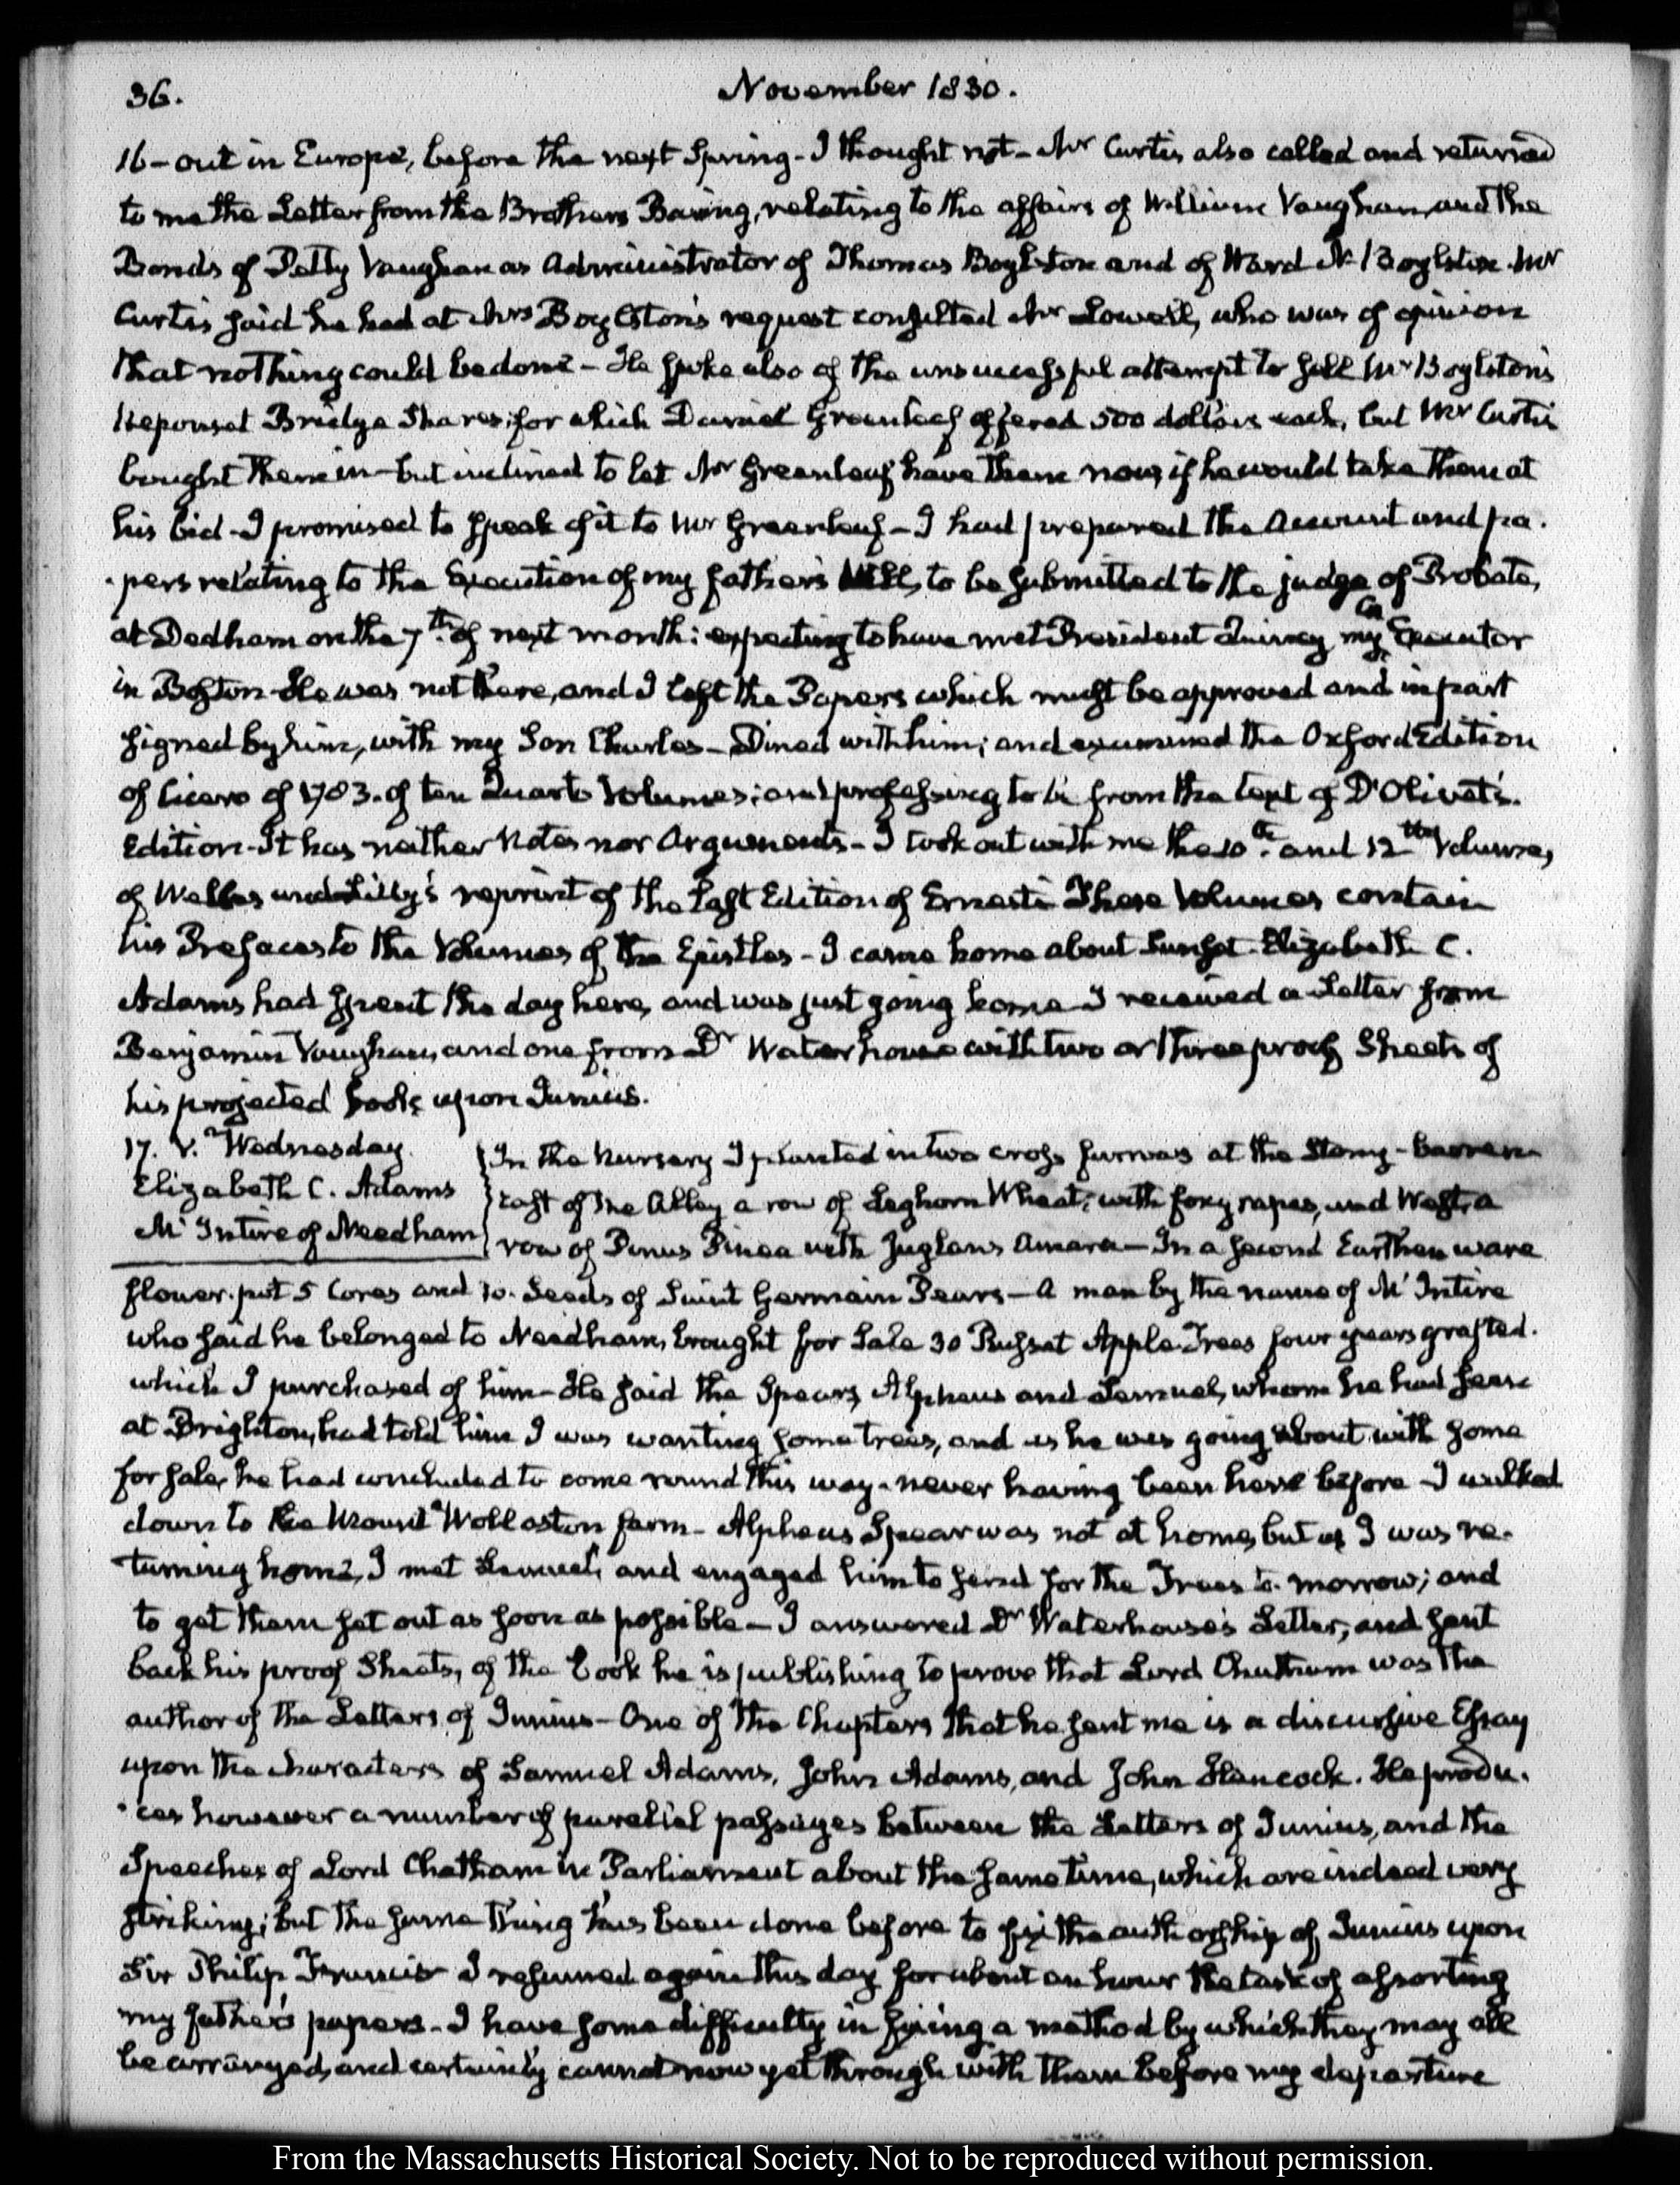 36.
November 1830.
16- out in Europe, before the next Spring - I thought not - Mr Curtis also called and returned
to me the Letter from the Brothers Baring, relating to the affairs of William Vaughan, and the
Bonds of Petty Vaughan as Administrator of Thomas Boylston and of Ward N. Boylston. Mr
Curtis said he had at Mrs Boylston's request consulted Mr Lowell, who was of opinion
that nothing could be done - He spoke also of the unsuccessful attempt to sell Mr Boylston's
Neponset Bridge Shares; for which Daniel Greenleaf offered 500 dollars each, but Mr Curtis
bought them in - but inclined to let Mr Greenleaf have them now, if he would take them at
his bid - I promised to speak of it to Mr Greenleaf - I had prepared the Account and pa-
-pers relating to the Execution of my father's Will, to be submitted to the judge of Probate,
at Dedham on the 7th. of next month: expecting to have met President Quincy my Co Executor
in Boston - He was not there, and I left the Papers which must be approved and in part
signed by him, with my Son Charles - Dined with him; and examined the Oxford Edition
of Cicero of 1783. of ten Quarto Volumes; and professing to be from the text of D'Olivet's.
Edition - It has neither Notes nor Arguments - I took out with me the 10th. and 12th Volumes,
of Wells and Lilly's reprint of the last Edition of Ernesti These Volumes contain
his Prefaces to the Volumes of the Epistles - I came home about Sunset. Elizabeth C.
Adams had spent the day here, and was just going home - I received a Letter from
Benjamin Vaughan, and one from Dr Waterhouse with two or three proof Sheets of
his projected book upon Junius.
17. V. Wednesday.
Elizabeth C. Adams
Mc Intire of Needham
In the Nursery I planted in two cross furrows at the Stony-barren
East of the Alley a row of Leghorn Wheat; with foxy rapes, and West, a
row of Pinus Pinea with Juglans Amara - In a second Earthen ware
flower-pot 5 Cores and 10. Seeds of Saint Germain Pears - A man by the name of Mc Intire
who said he belonged to Needham, brought for Sale 30 Russet Apple-Trees four years grafted.
which I purchased of him - He said the Spears, Alpheus and Lemuel, whom he had seen
at Brighton, had told him I was wanting some trees, and as he was going about with some
for sale, he had concluded to come round this way - never having been here before - I walked
down to the Mount Wollaston farm - Alpheus Spear was not at home, but as I was re-
-turning home, I met Lemuel, and engaged him to send for the Trees to-morrow; and
to get them set out as soon as possible - I answered Dr Waterhouse's Letter, and sent
back his proof Sheets, of the book he is publishing to prove that Lord Chatham was the
author of the Letters of Junius - One of the Chapters that he sent me is a discursive Essay
upon the characters of Samuel Adams, John Adams, and John Hancock. He produ-
-ces however a number of parallel passages between the Letters of Junius, and the
Speeches of Lord Chatham in Parliament about the same time, which are indeed very
striking; but the same thing has been done before to fix the authorship of Junius upon
Sir Philip Francis - I resumed again this day for about an hour the task of assorting
my father's papers - I have some difficulty in fixing a method by which they may all
be arranged, and certainly cannot now get through with them before my departure
From the Massachusetts Historical Society. Not to be reproduced without permission.